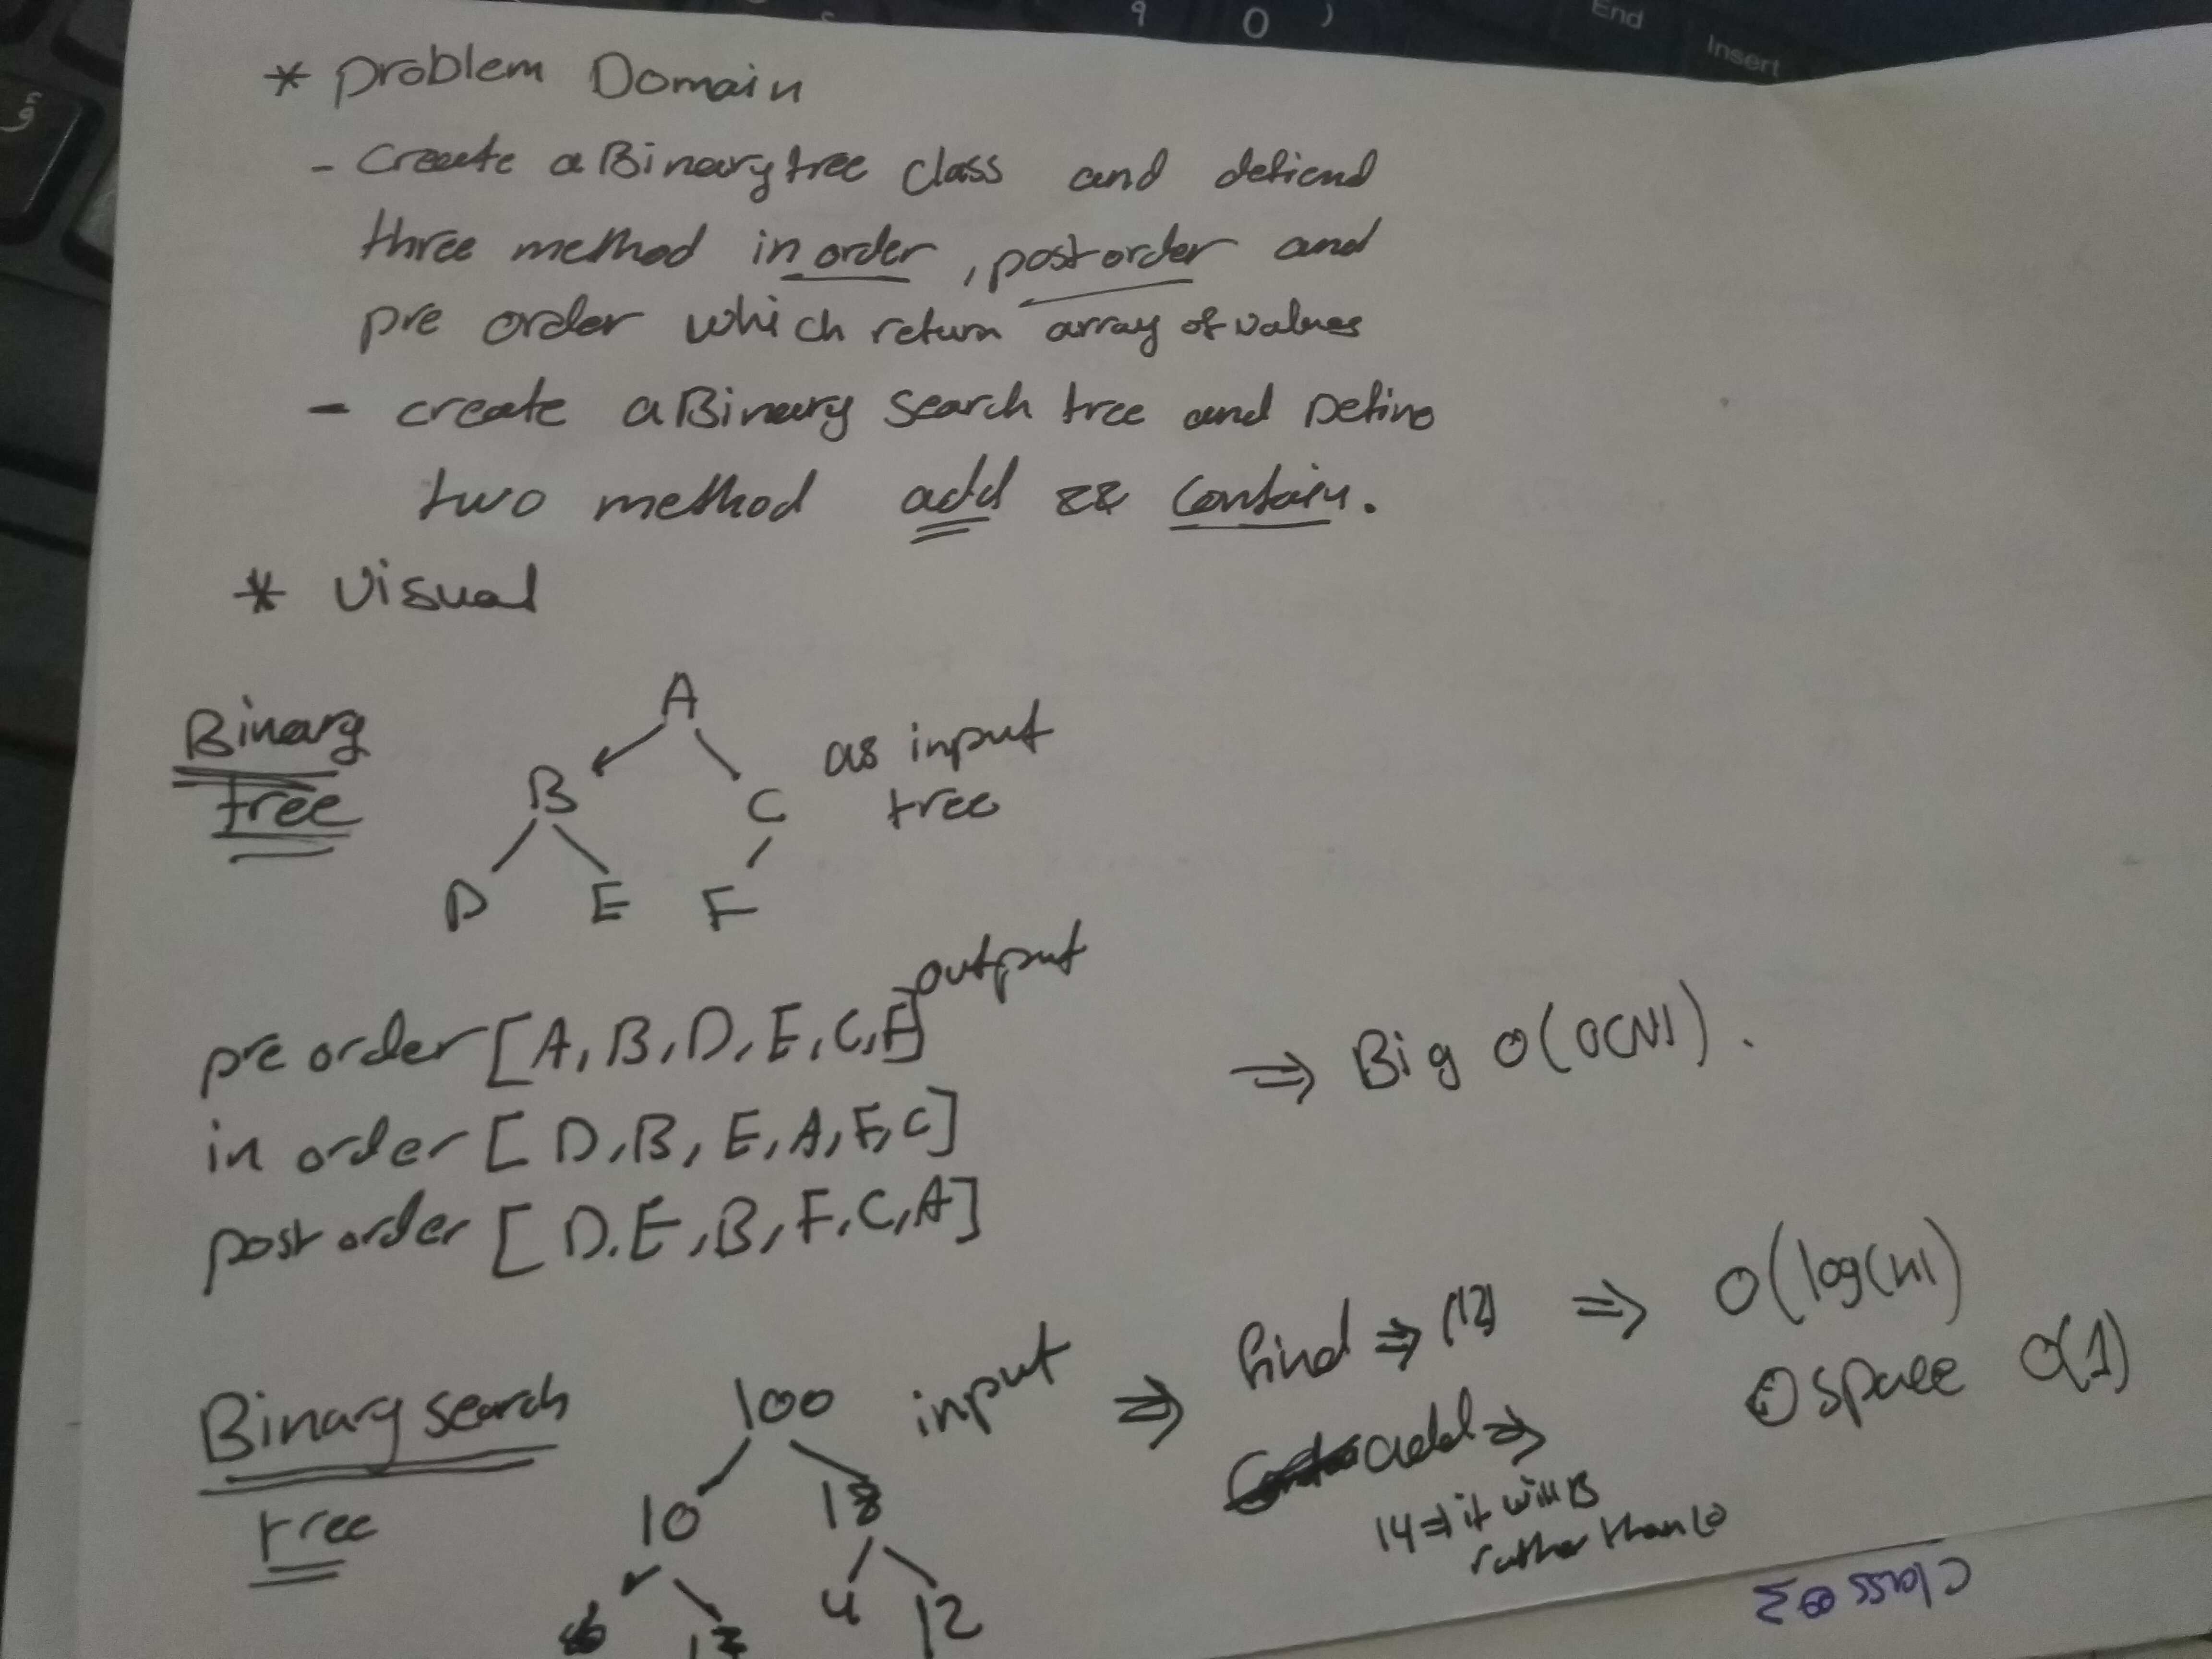 9 0 )
End
Insert
* problem Domain
- Create a Binary tree class and defiend
three method in order , post order and
pre order which return array of values
- create a Binary search tree and Define
two method add && contain.
* Visual
Binary tree
A
B C
as input tree
D E F
output
pre order [A, B, D, E, C, F]
in order [ D, B, E, A, F, C]
post order [ D. E , B, F, C, A]
=> Big O(O(N)).
Binary search tree
100
input
10
4 12
=> find => (12) => O(log(n))
add =>
space O(1)
14 => it will
rather than
class 03